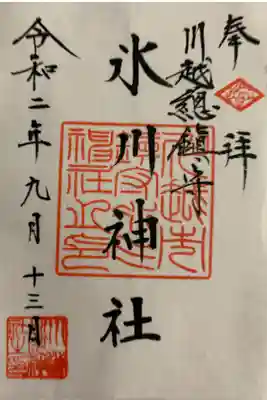 奉拝
川越總鎮守
氷川神社
令和二年九月十三日